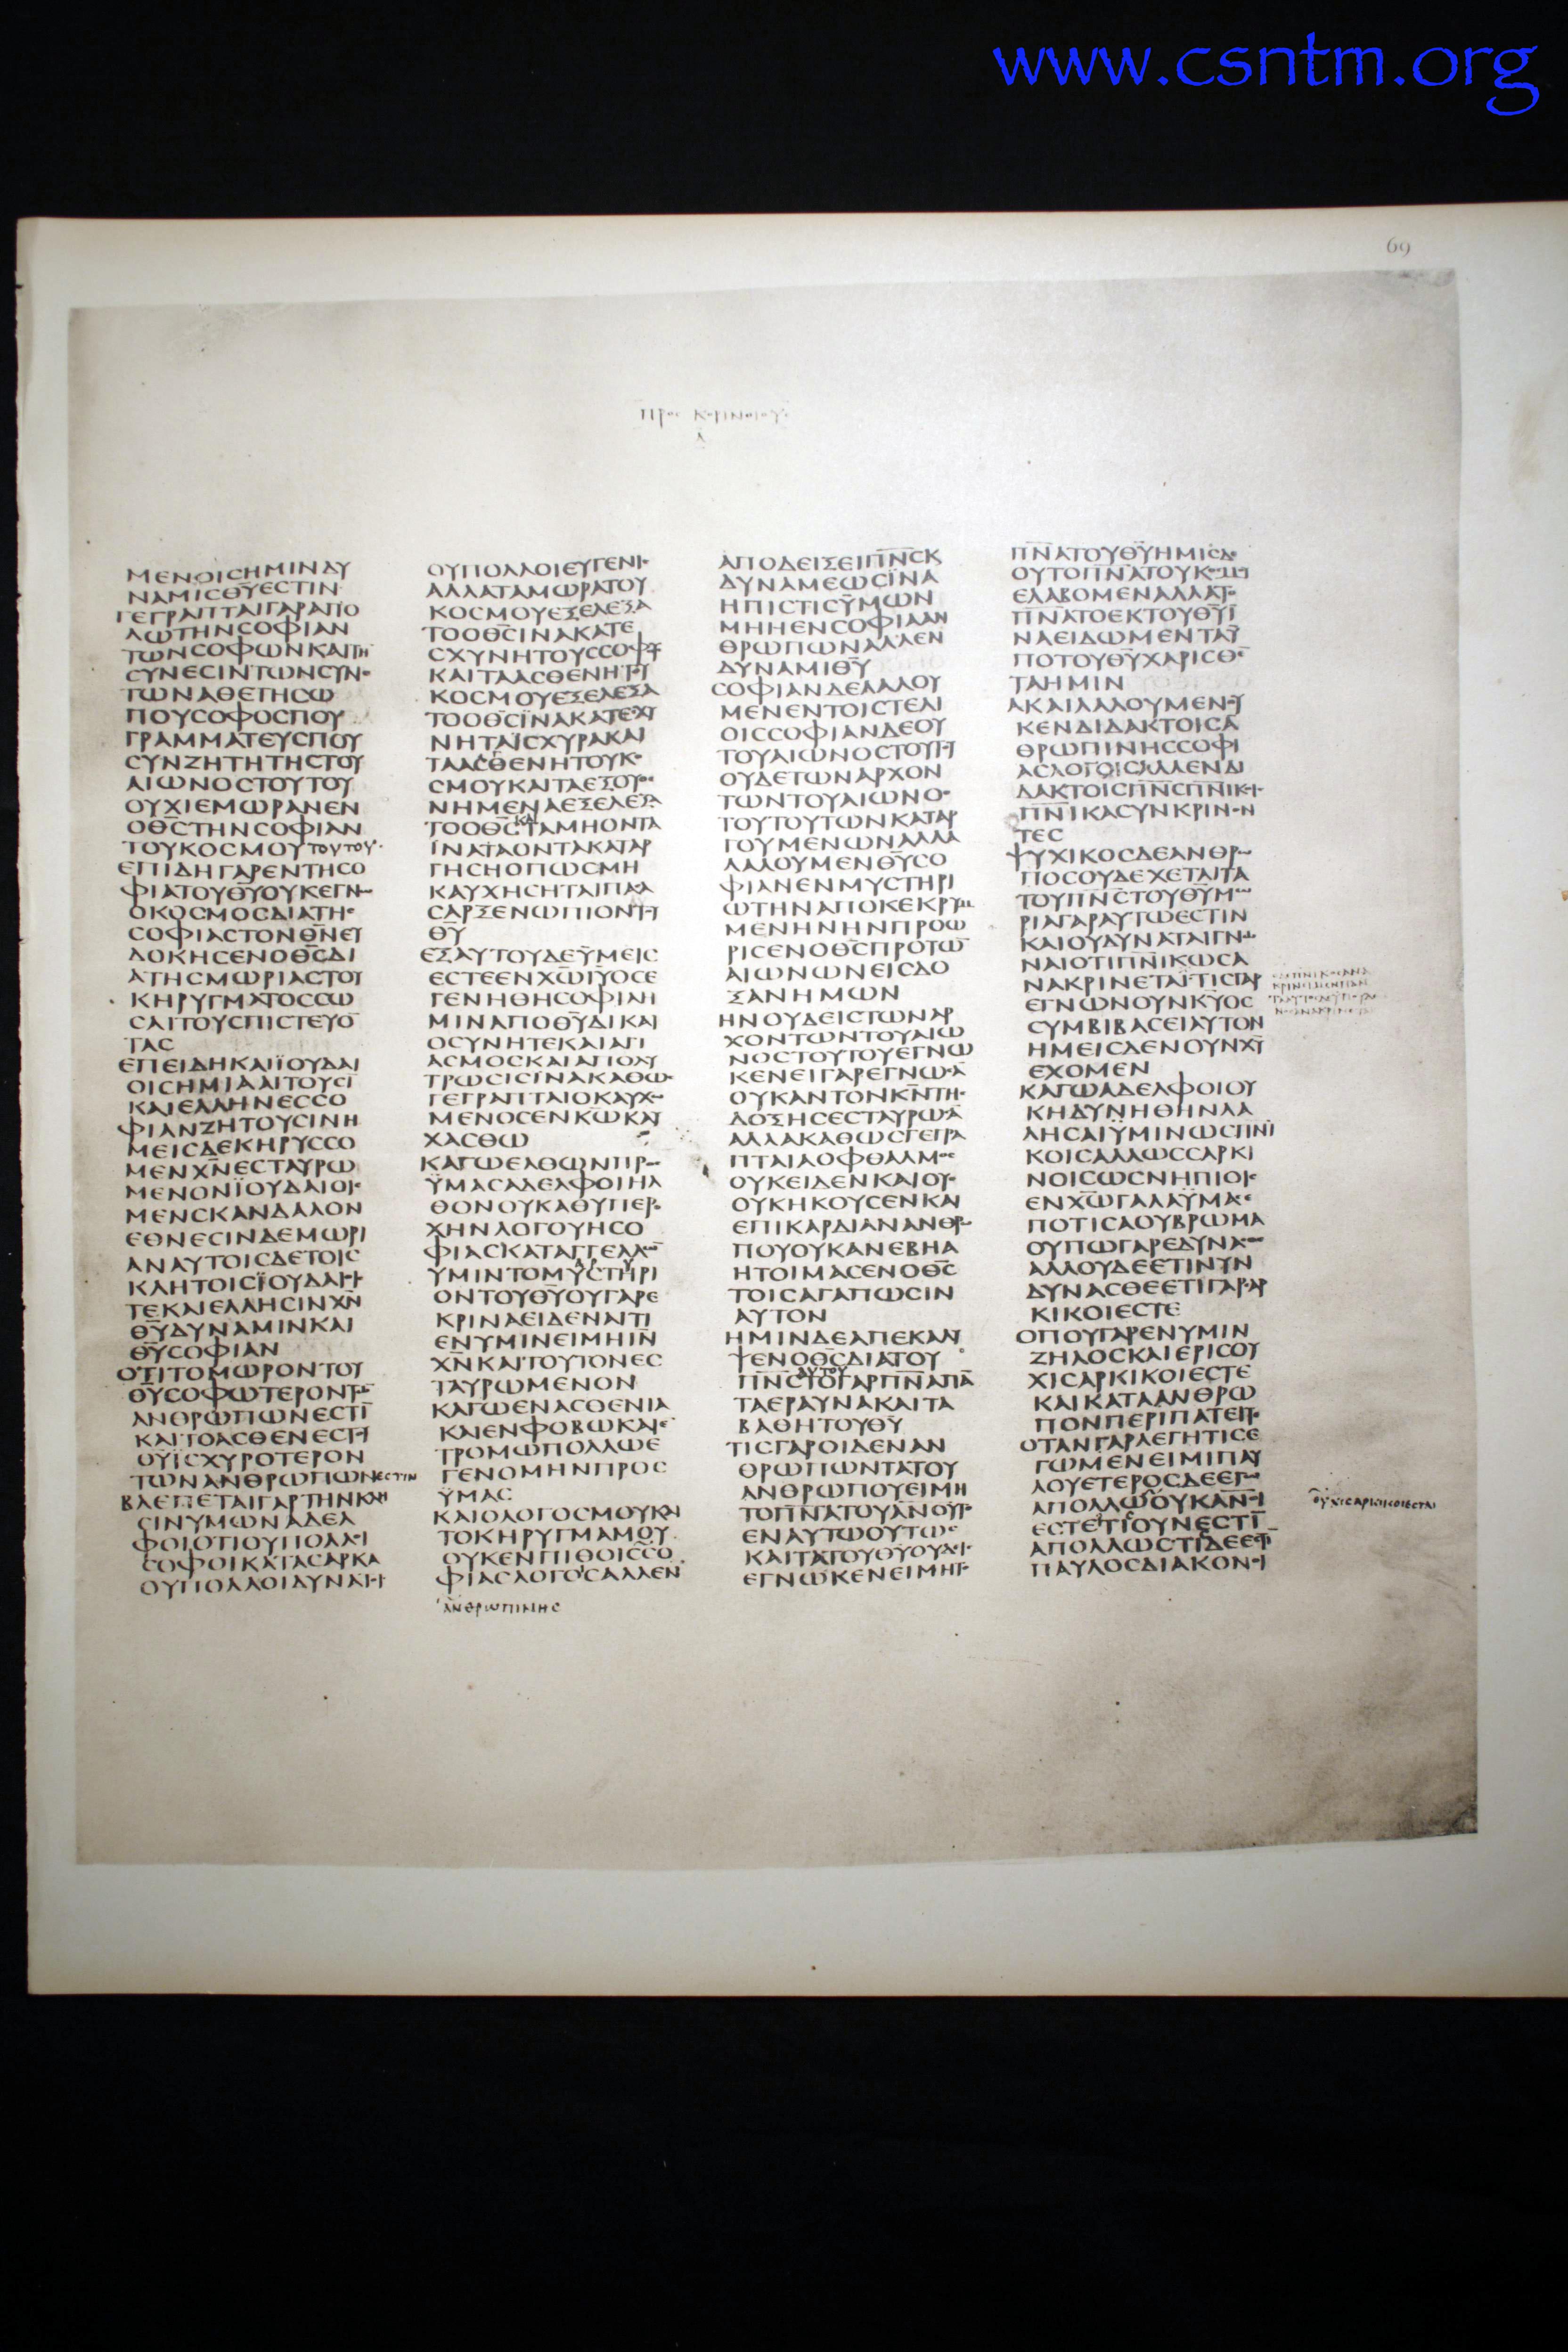 www.csntm.org
69
ΠΡΟC ΚΟΡΙΝΘΙΟΥC
Α
ΜΕΝΟΙCΗΜΙΝΔΥ
ΝΑΜΙCΘΥ̅ΕCΤΙΝ
ΓΕΓΡΑΠΤΑΙΓΑΡΑΠΟ
ΛΩΤΗΝCΟΦΙΑΝ
ΤΩΝCΟΦΩΝΚΑΙΤΗ̅
CΥΝΕCΙΝΤΩΝCΥΝΕ
ΤΩΝΑΘΕΤΗCΩ
ΠΟΥCΟΦΟCΠΟΥ
ΓΡΑΜΜΑΤΕΥCΠΟΥ
CΥΝΖΗΤΗΤΗCΤΟΥ
ΑΙΩΝΟCΤΟΥΤΟΥ
ΟΥΧΙΕΜΩΡΑΝΕΝ
ΟΘ̅C̅ΤΗΝCΟΦΙΑΝ
ΤΟΥΚΟCΜΟΥΤΟΥΤΟΥ
ΕΠΙΔΗΓΑΡΕΝΤΗCΟ
ΦΙΑΤΟΥΘΥ̅ΟΥΚΕΓΝΩ
ΟΚΟCΜΟCΔΙΑΤΗC
CΟΦΙΑCΤΟΝΘ̅Ν̅ΕΥ
ΔΟΚΗCΕΝΟΘ̅C̅ΔΙ
ΑΤΗCΜΩΡΙΑCΤΟΥ
ΚΗΡΥΓΜΑΤΟCCΩ
CΑΙΤΟΥCΠΙCΤΕΥΟ̅
ΤΑC
ΕΠΕΙΔΗΚΑΙΪΟΥΔΑΙ
ΟΙCΗΜΙΑΑΙΤΟΥCΙ̅
ΚΑΙΕΛΛΗΝΕCCΟ
ΦΙΑΝΖΗΤΟΥCΙΝΗ
ΜΕΙCΔΕΚΗΡΥCCΟ
ΜΕΝΧ̅Ν̅ΕCΤΑΥΡΩ
ΜΕΝΟΝΪΟΥΔΑΙΟΙC
ΜΕΝCΚΑΝΔΑΛΟΝ
ΕΘΝΕCΙΝΔΕΜΩΡΙ
ΑΝΑΥΤΟΙCΔΕΤΟΙC
ΚΛΗΤΟΙCΪΟΥΔΑΙΟΙC
ΤΕΚΑΙΕΛΛΗCΙΝΧ̅Ν̅
ΘΥ̅ΔΥΝΑΜΙΝΚΑΙ
ΘΥ̅CΟΦΙΑΝ
ΟΤΙΤΟΜΩΡΟΝΤΟΥ
ΘΥ̅CΟΦΩΤΕΡΟΝΤΩ̅
ΑΝΘΡΩΠΩΝΕCΤΙ̅
ΚΑΙΤΟΑCΘΕΝΕCΤΟΥ
ΘΥ̅ΪCΧΥΡΟΤΕΡΟΝ
ΤΩΝΑΝΘΡΩΠΩΝΕCΤΙΝ
ΒΛΕΠΕΤΑΙΓΑΡΤΗΝΚΛΗ
CΙΝΥΜΩΝΑΔΕΛ
ΦΟΙΟΤΙΟΥΠΟΛΛΟΙ
CΟΦΟΙΚΑΤΑCΑΡΚΑ
ΟΥΠΟΛΛΟΙΔΥΝΑΤΟΙ
ΟΥΠΟΛΛΟΙΕΥΓΕΝΙC
ΑΛΛΑΤΑΜΩΡΑΤΟΥ
ΚΟCΜΟΥΕΞΕΛΕΞΑ
ΤΟΟΘ̅C̅ΙΝΑΚΑΤΕ
CΧΥΝΗΤΟΥCCΟΦΟΥC
ΚΑΙΤΑΑCΘΕΝΗΤΟΥ
ΚΟCΜΟΥΕΞΕΛΕΞΑ
ΤΟΟΘ̅C̅ΪΝΑΚΑΤΕΧΥ
ΝΗΤΑΪCΧΥΡΑΚΑΙ
ΤΑΑCΘΕΝΗΤΟΥΚΟ
CΜΟΥΚΑΙΤΑΕΞΟΥΘΕ
ΝΗΜΕΝΑΕΞΕΛΕΞΑ
ΚΑΙ
ΤΟΟΘ̅C̅ΤΑΜΗΟΝΤΑ
ΪΝΑΤΑΟΝΤΑΚΑΤΑΡ
ΓΗCΗΟΠΩCΜΗ
ΚΑΥΧΗCΗΤΑΙΠΑCΑ
CΑΡΞΕΝΩΠΙΟΝΤΟΥ
ΘΥ̅
ΕΞΑΥΤΟΥΔΕΫΜΕΙC
ΕCΤΕΕΝΧ̅Ω̅Ι̅Υ̅ΟCΕ
ΓΕΝΗΘΗCΟΦΙΑΗ
ΜΙΝΑΠΟΘΥ̅ΔΙΚΑΙ
ΟCΥΝΗΤΕΚΑΙΑΓΙ
ΑCΜΟCΚΑΙΑΠΟΛΥ
ΤΡΩCΙCΪΝΑΚΑΘΩC
ΓΕΓΡΑΠΤΑΙΟΚΑΥΧΩ
ΜΕΝΟCΕΝΚ̅Ω̅ΚΑΥ
ΧΑCΘΩ
ΚΑΓΩΕΛΘΩΝΠΡΟC
ΫΜΑCΑΔΕΛΦΟΙΗΛ
ΘΟΝΟΥΚΑΘΥΠΕΡΟ
ΧΗΝΛΟΓΟΥΗCΟ
ΦΙΑCΚΑΤΑΓΓΕΛΛΩ̅
ΥΜΙΝΤΟΜΥCΤΗΡΙ
ΟΝΤΟΥΘΥ̅ΟΥΓΑΡΕ
ΚΡΙΝΑΕΙΔΕΝΑΙΤΙ
ΕΝΥΜΙΝΕΙΜΗΙ̅Ν̅
Χ̅Ν̅ΚΑΙΤΟΥΤΟΝΕC
ΤΑΥΡΩΜΕΝΟΝ
ΚΑΓΩΕΝΑCΘΕΝΙΑ
ΚΑΙΕΝΦΟΒΩΚΑΙΕ̅
ΤΡΟΜΩΠΟΛΛΩΕ
ΓΕΝΟΜΗΝΠΡΟC
ΫΜΑC
ΚΑΙΟΛΟΓΟCΜΟΥΚΑΙ
ΤΟΚΗΡΥΓΜΑΜΟΥ
ΟΥΚΕΝΠΙΘΟΙCCΟ
ΦΙΑCΛΟΓΟΙCΑΛΛΕΝ
ΑΝΘΡΩΠΙΝΗC
ΑΠΟΔΕΙΞΕΙΠ̅Ν̅C̅Κ
ΔΥΝΑΜΕΩCΪΝΑ
ΗΠΙCΤΙCΫΜΩΝ
ΜΗΗΕΝCΟΦΙΑΑΝ
ΘΡΩΠΩΝΑΛΛΕΝ
ΔΥΝΑΜΙΘΥ̅
CΟΦΙΑΝΔΕΛΑΛΟΥ
ΜΕΝΕΝΤΟΙCΤΕΛΙ
ΟΙCCΟΦΙΑΝΔΕΟΥ
ΤΟΥΑΙΩΝΟCΤΟΥΤΟΥ
ΟΥΔΕΤΩΝΑΡΧΟΝ
ΤΩΝΤΟΥΑΙΩΝΟC
ΤΟΥΤΟΥΤΩΝΚΑΤΑΡ
ΓΟΥΜΕΝΩΝΑΛΛΑ
ΛΑΛΟΥΜΕΝΘΥ̅CΟ
ΦΙΑΝΕΝΜΥCΤΗΡΙ
ΩΤΗΝΑΠΟΚΕΚΡΥΜ
ΜΕΝΗΝΗΝΠΡΟΩ
ΡΙCΕΝΟΘ̅C̅ΠΡΟΤΩ̅
ΑΙΩΝΩΝΕΙCΔΟ
ΞΑΝΗΜΩΝ
ΗΝΟΥΔΕΙCΤΩΝΑΡ
ΧΟΝΤΩΝΤΟΥΑΙΩ
ΝΟCΤΟΥΤΟΥΕΓΝΩ
ΚΕΝΕΙΓΑΡΕΓΝΩCΑ̅
ΟΥΚΑΝΤΟΝΚ̅Ν̅ΤΗC
ΔΟΞΗCΕCΤΑΥΡΩCΑ̅
ΑΛΛΑΚΑΘΩCΓΕΓΡΑ
ΠΤΑΙΑΟΦΘΑΛΜΟC
ΟΥΚΕΙΔΕΝΚΑΙΟΥC
ΟΥΚΗΚΟΥCΕΝΚΑΙ
ΕΠΙΚΑΡΔΙΑΝΑΝΘΡΩ
ΠΟΥΟΥΚΑΝΕΒΗΑ
ΗΤΟΙΜΑCΕΝΟΘ̅C̅
ΤΟΙCΑΓΑΠΩCΙΝ
ΑΥΤΟΝ
ΗΜΙΝΔΕΑΠΕΚΑΛΥ
ΨΕΝΟΘ̅C̅ΔΙΑΤΟΥ
ΑΥΤΟΥ
Π̅Ν̅C̅ΤΟΓΑΡΠ̅Ν̅ΑΠΑ̅
ΤΑΕΡΑΥΝΑΚΑΙΤΑ
ΒΑΘΗΤΟΥΘΥ̅
ΤΙCΓΑΡΟΙΔΕΝΑΝ
ΘΡΩΠΩΝΤΑΤΟΥ
ΑΝΘΡΩΠΟΥΕΙΜΗ
ΤΟΠ̅Ν̅ΑΤΟΥΑ̅Ν̅ΟΥ̅ΤΟ
ΕΝΑΥΤΩΟΥΤΩC
ΚΑΙΤΑΤΟΥΘΥ̅ΟΥΔΙC
ΕΓΝΩΚΕΝΕΙΜΗΤΟ
Π̅Ν̅ΑΤΟΥΘΥ̅ΗΜΙCΔΕ
ΟΥΤΟΠ̅Ν̅ΑΤΟΥΚΟCΜΟΥ
ΕΛΑΒΟΜΕΝΑΛΛΑΤΟ
Π̅Ν̅ΑΤΟΕΚΤΟΥΘΥ̅Ϊ
ΝΑΕΙΔΩΜΕΝΤΑΫ
ΠΟΤΟΥΘΥ̅ΧΑΡΙCΘΕ̅
ΤΑΗΜΙΝ
ΑΚΑΙΛΑΛΟΥΜΕΝΟΥ
ΚΕΝΔΙΔΑΚΤΟΙCΑ̅
ΘΡΩΠΙΝΗCCΟΦΙ
ΑCΛΟΓΟΙCΑΛΛΕΝΔΙ
ΔΑΚΤΟΙCΠ̅Ν̅C̅Π̅Ν̅ΙΚΟΙC
Π̅Ν̅ΙΚΑCΥΝΚΡΙΝΟΝ
ΤΕC
ΨΥΧΙΚΟCΔΕΑΝΘΡΩ
ΠΟCΟΥΔΕΧΕΤΑΙΤΑ
ΤΟΥΠ̅Ν̅C̅ΤΟΥΘΥ̅ΜΩ
ΡΙΑΓΑΡΑΥΤΩΕCΤΙΝ
ΚΑΙΟΥΔΥΝΑΤΑΙΓΝΩ
ΝΑΙΟΤΙΠ̅Ν̅ΙΚΩCΑ
ΝΑΚΡΙΝΕΤΑΙΤΙCΓΑΡ
ΕΓΝΩΝΟΥΝΚ̅Υ̅ΟC
CΥΜΒΙΒΑCΕΙΑΥΤΟΝ
ΗΜΕΙCΔΕΝΟΥΝΧ̅Υ̅
ΕΧΟΜΕΝ
ΚΑΓΩΑΔΕΛΦΟΙΟΥ
ΚΗΔΥΝΗΘΗΝΛΑ
ΛΗCΑΙΫΜΙΝΩCΠ̅Ν̅Ι
ΚΟΙCΑΛΛΩCCΑΡΚΙ
ΝΟΙCΩCΝΗΠΙΟΙC
ΕΝΧ̅Ω̅ΓΑΛΑΫΜΑC
ΠΟΤΙCΑΟΥΒΡΩΜΑ
ΟΥΠΩΓΑΡΕΔΥΝΑCΘΕ
ΑΛΛΟΥΔΕΕΤΙΝΥΝ
ΔΥΝΑCΘΕΕΤΙΓΑΡCΑΡ
ΚΙΚΟΙΕCΤΕ
ΟΠΟΥΓΑΡΕΝΥΜΙΝ
ΖΗΛΟCΚΑΙΕΡΙCΟΥ
ΧΙCΑΡΚΙΚΟΙΕCΤΕ
ΚΑΙΚΑΤΑΑΝΘΡΩ
ΠΟΝΠΕΡΙΠΑΤΕΙΤΕ
ΟΤΑΝΓΑΡΛΕΓΗΤΙCΕ
ΓΩΜΕΝΕΙΜΙΠΑΥ
ΛΟΥΕΤΕΡΟCΔΕΕΓΩ
ΑΠΟΛΛΩΟΥΚΑΝΟΙ
ΟΥΧΙCΑΡΚΙΚΟΙΕCΤΑΙ
ΕCΤΕΤΙΟΥΝΕCΤΙ̅
ΑΠΟΛΛΩCΤΙΔΕΕCΤΙ̅
ΠΑΥΛΟCΔΙΑΚΟΝΟΙ